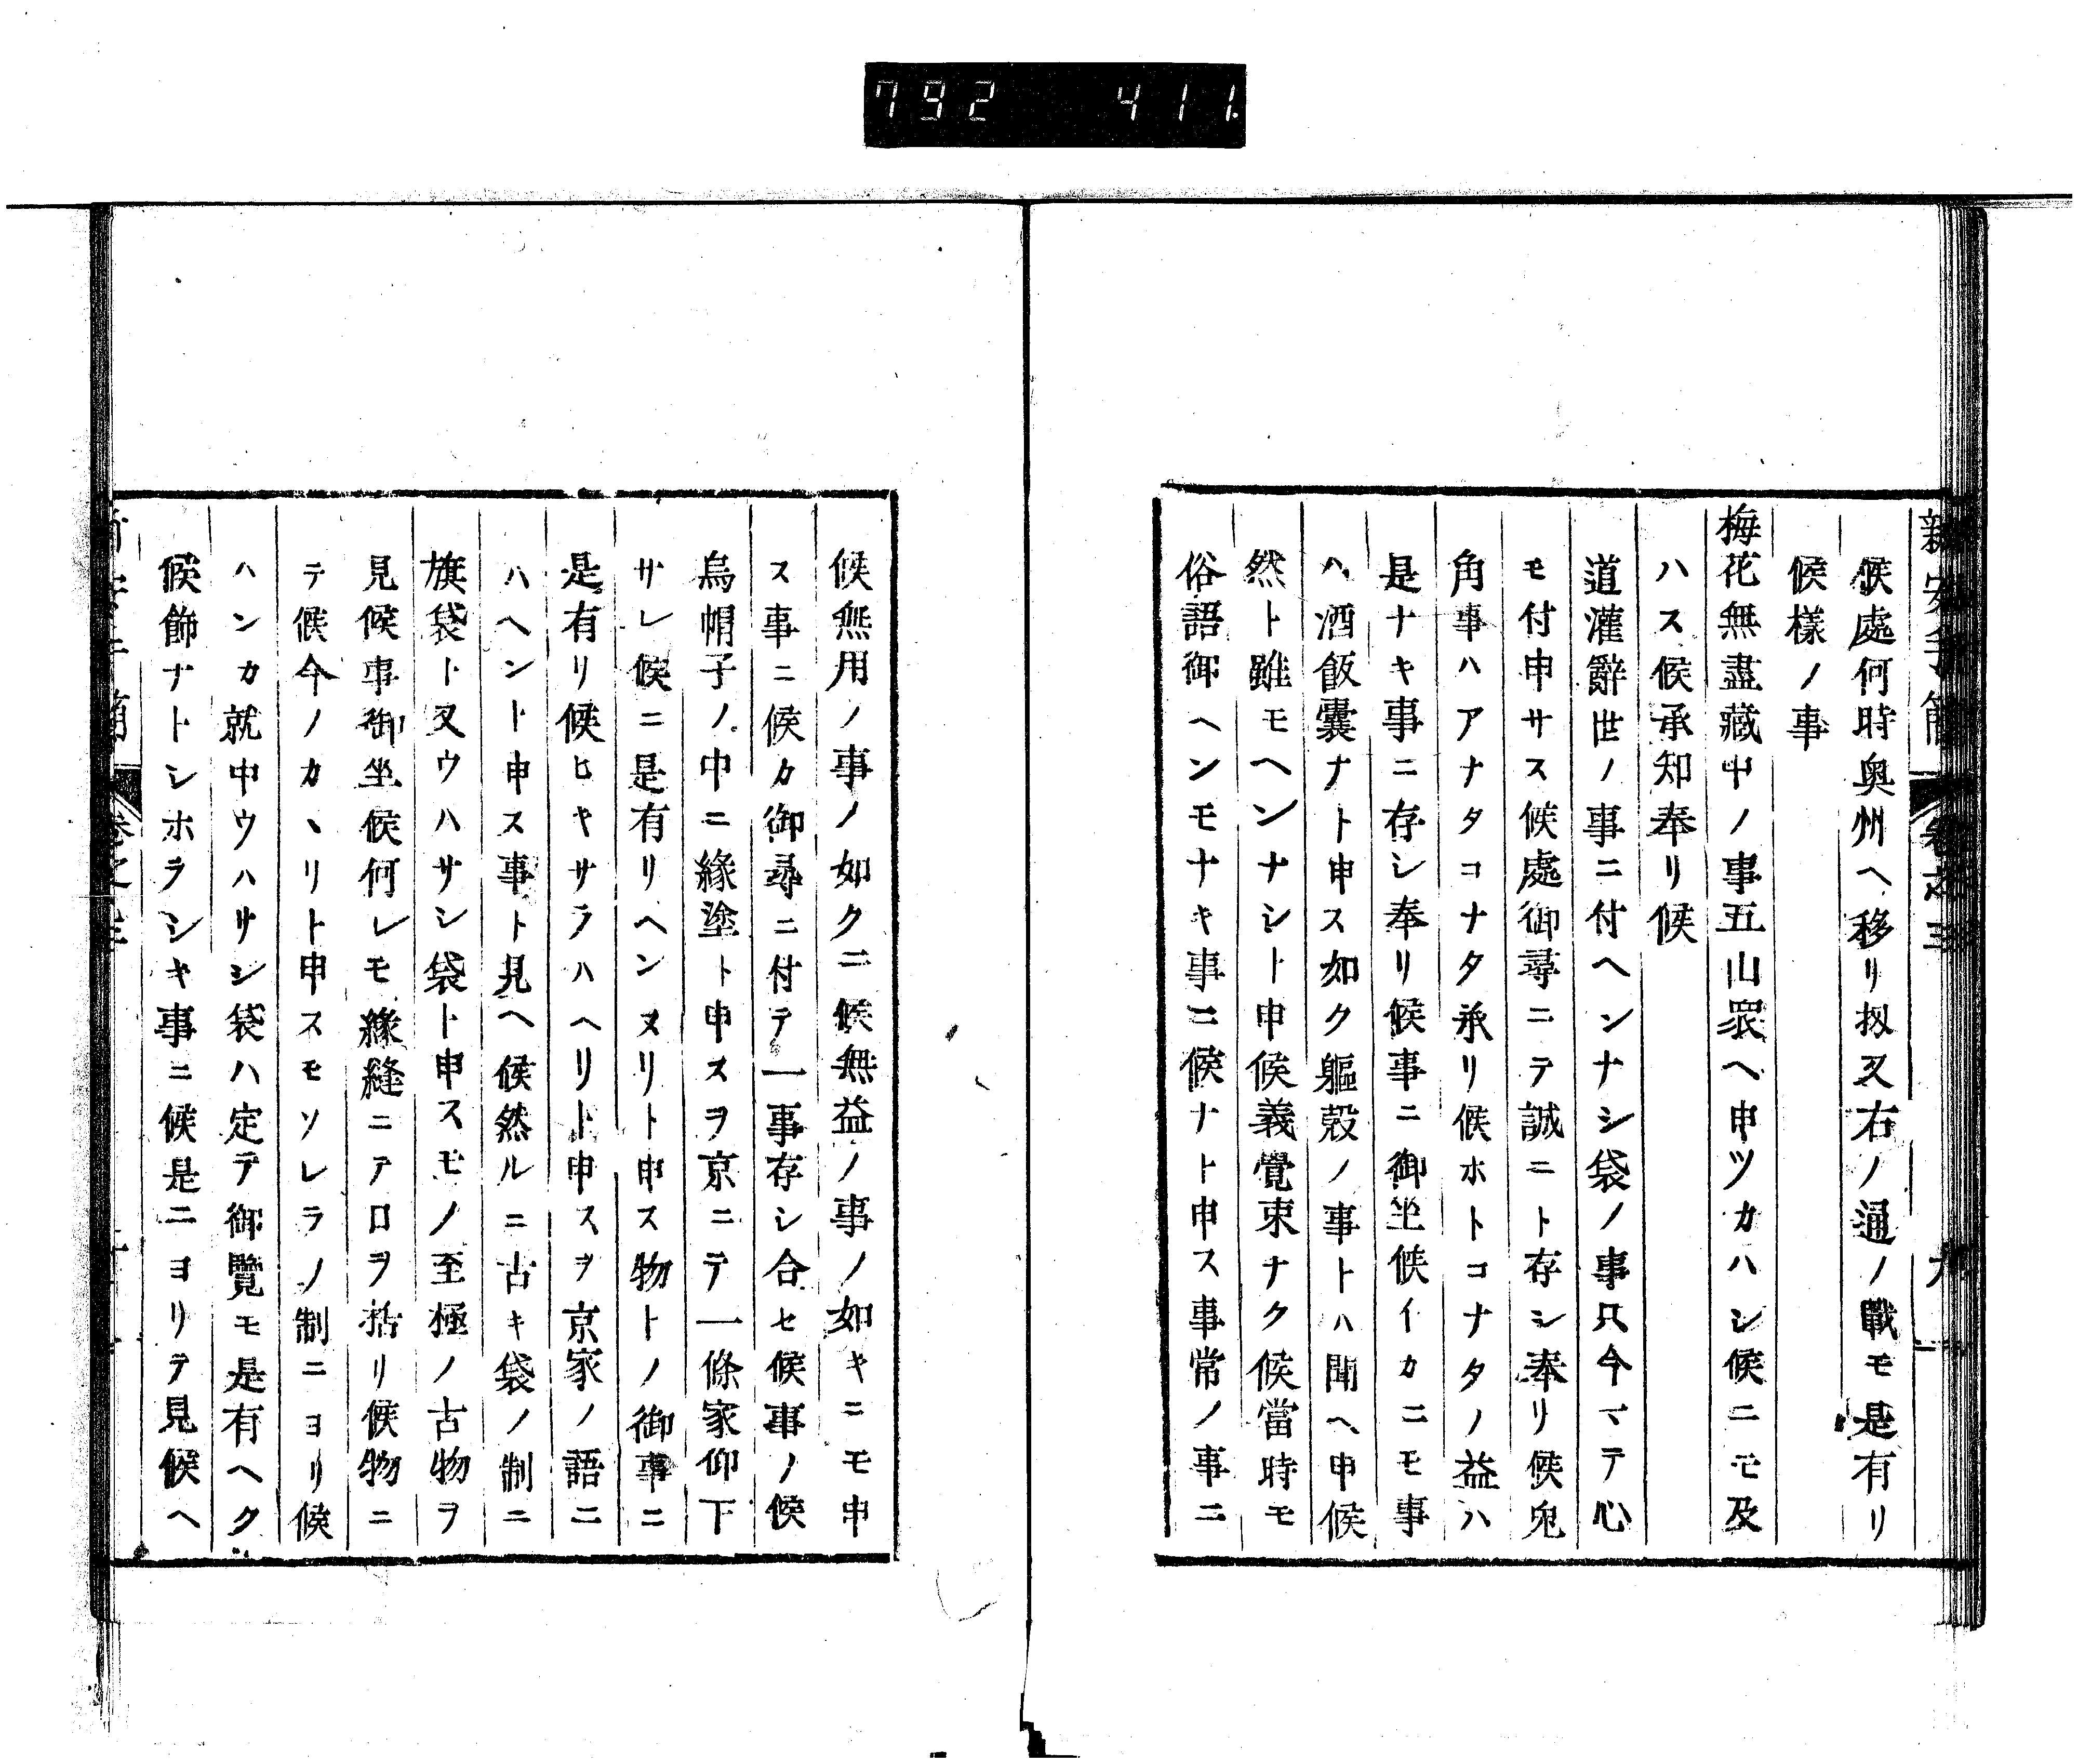 792 411.
新安手簡 卷之三 九
候處何時奥州ヘ移リ扨又右ノ通ノ戰モ是有リ
候樣ノ事
梅花無盡藏中ノ事五山衆ヘ申ツカハシ候ニモ及
ハス候承知奉リ候
道灌辭世ノ事ニ付ヘンナシ袋ノ事只今マテ心
モ付申サス候處御尋ニテ誠ニト存シ奉リ候兎
角事ハアナタコナタ承リ候ホトコナタノ益ハ
是ナキ事ニ存シ奉リ候事ニ御坐候イカニモ事
ハ酒飯嚢ナト申ス如ク軀殻ノ事トハ聞ヘ申候
然ト雖モヘンナシト申候義覺束ナク候當時モ
俗語御ヘンモナキ事ニ候ナト申ス事常ノ事ニ
候無用ノ事ノ如クニ候無益ノ事ノ如キニモ申
ス事ニ候カ御尋ニ付テ一事存シ合セ候事ノ候
烏帽子ノ中ニ緣塗ト申スヲ京ニテ一條家仰下
サレ候ニ是有リヘンヌリト申ス物トノ御事ニ
是有リ候ヒキサラハヘリト申スヲ京家ノ語ニ
ハヘント申ス事ト見ヘ候然ルニ古キ袋ノ制ニ
旗袋ト又ウハサシ袋ト申スモノ至極ノ古物ヲ
見候事御坐候何レモ緣縫ニテロヲ括リ候物ニ
テ候今ノカヽリト申スモソレラノ制ニヨリ候
ハンカ就中ウハサシ袋ハ定テ御覽モ是有ヘク
候飾ナトシホラシキ事ニ候是ニヨリテ見候ヘ
新安手簡 卷之三